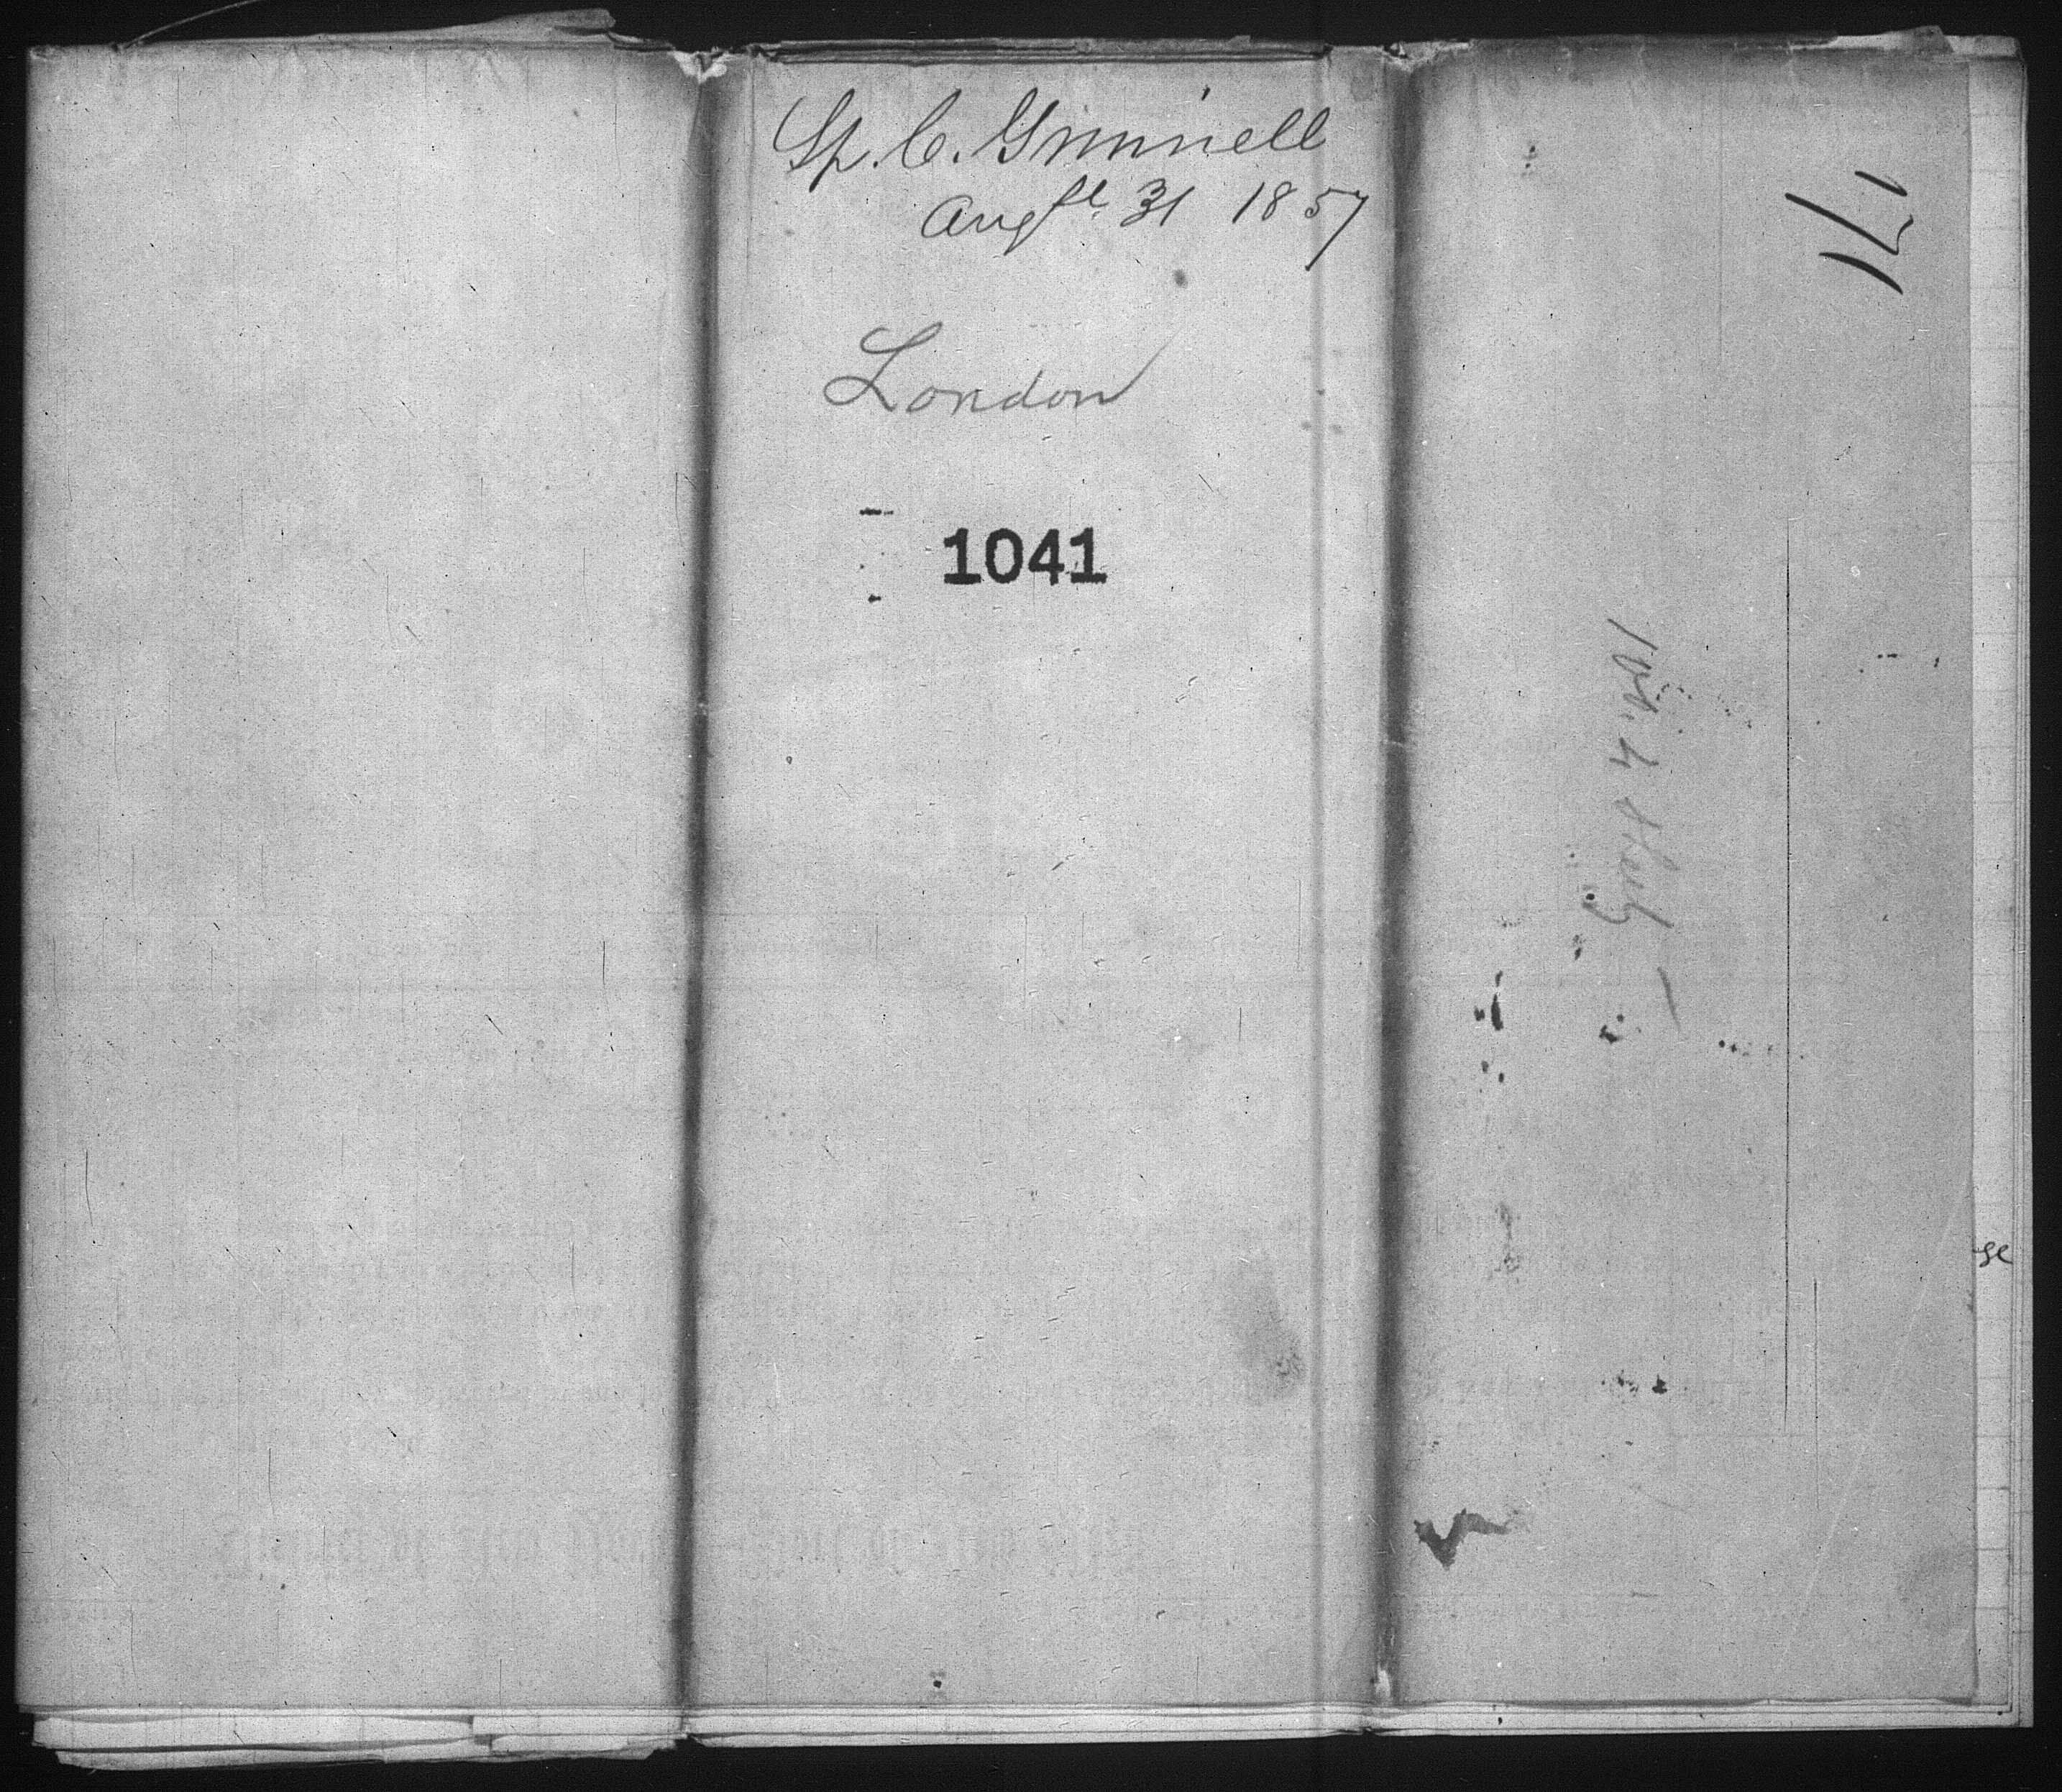 Sp. C. Grinnell
Augst 31 1857
London
1041
171